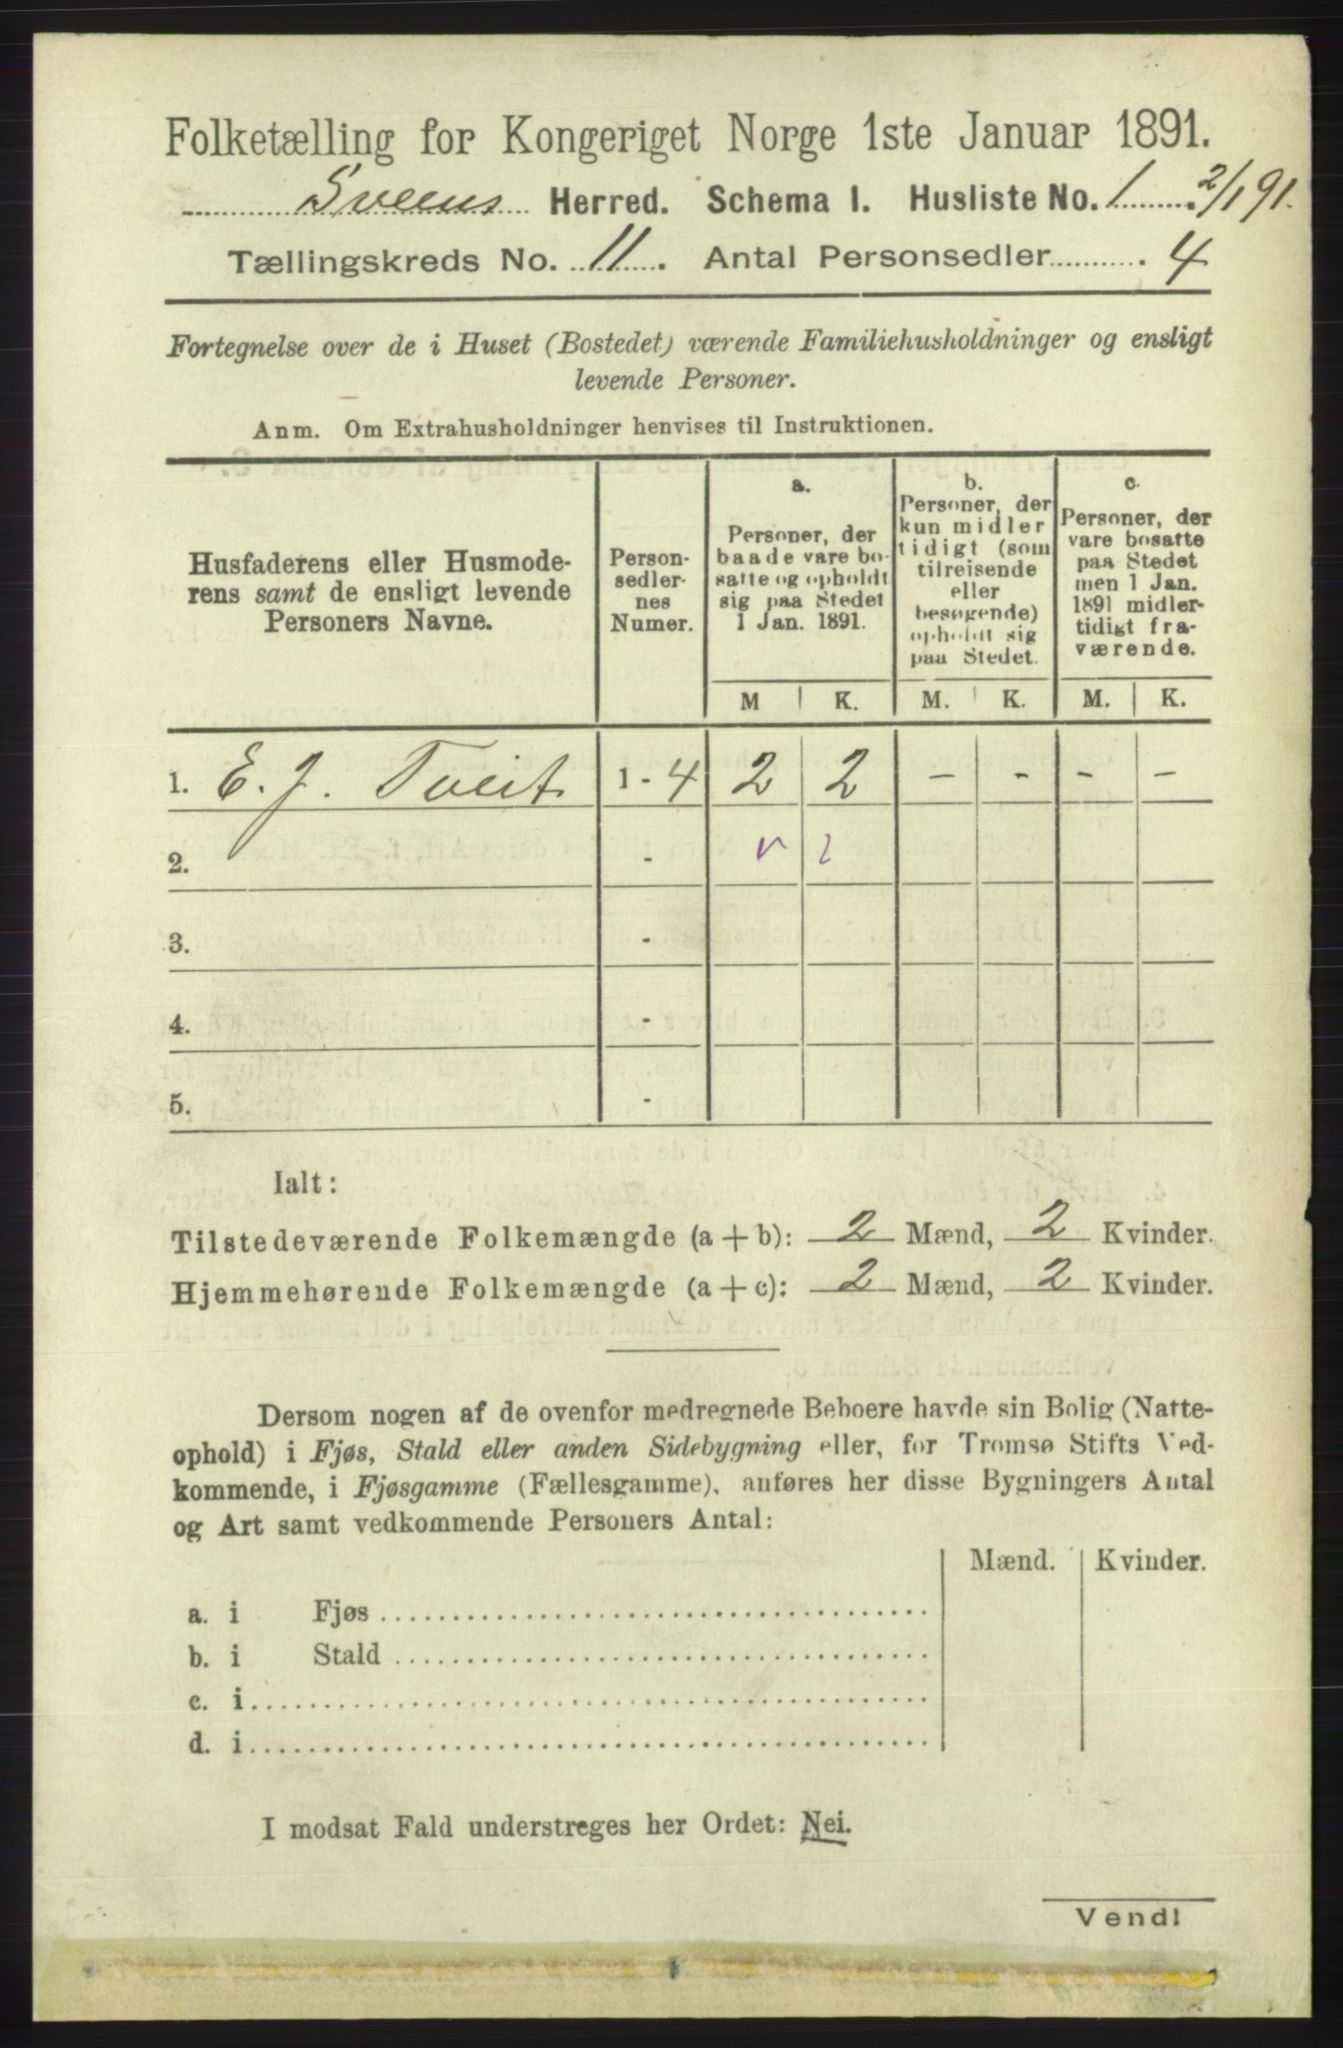 Folketælling for Kongeriget Norge 1ste Januar 1891.
Sveens Herred. Schema I. Husliste No. 1. 2/1 91.
Tællingskreds No. 11. Antal Personsedler. 4
Fortegnelse over de i Huset (Bostedet) værende Familiehusholdninger og ensligt
levende Personer.
Anm. Om Extrahusholdninger henvises til Instruktionen.
Husfaderens eller Husmode-
rens samt de ensligt levende
Personers Navne.
Person-
sedler-
nes
Numer.
a.
Personer, der
baade vare bo-
satte og opholdt
sig paa Stedet
1 Jan. 1891.
b.
Personer, der
kun midler
tidigt (som
tilreisende
eller
besøgende)
opholdt sig
paa Stedet.
c.
Personer, der
vare bosatte
paa Stedet
men 1 Jan.
1891 midler-
tidigt fra-
værende.
M K. M. K. M. K.
1. E. J. Tveit 1 - 4 2 2 - - - -
2. -
3. -
4. -
5. -
Ialt:
Tilstedeværende Folkemængde (a + b): 2 Mænd, 2 Kvinder.
Hjemmehørende Folkemængde (a + c): 2 Mænd, 2 Kvinder.
Dersom nogen af de ovenfor medregnede Beboere havde sin Bolig (Natte-
ophold) i Fjøs, Stald eller anden Sidebygning eller, for Tromsø Stifts Ved-
kommende, i Fjøsgamme (Fællesgamme), anføres her disse Bygningers Antal
og Art samt vedkommende Personers Antal:
Mænd. Kvinder.
a. i Fjøs
b. i Stald
c. i
d. i
I modsat Fald understreges her Ordet: Nei.
Vend!